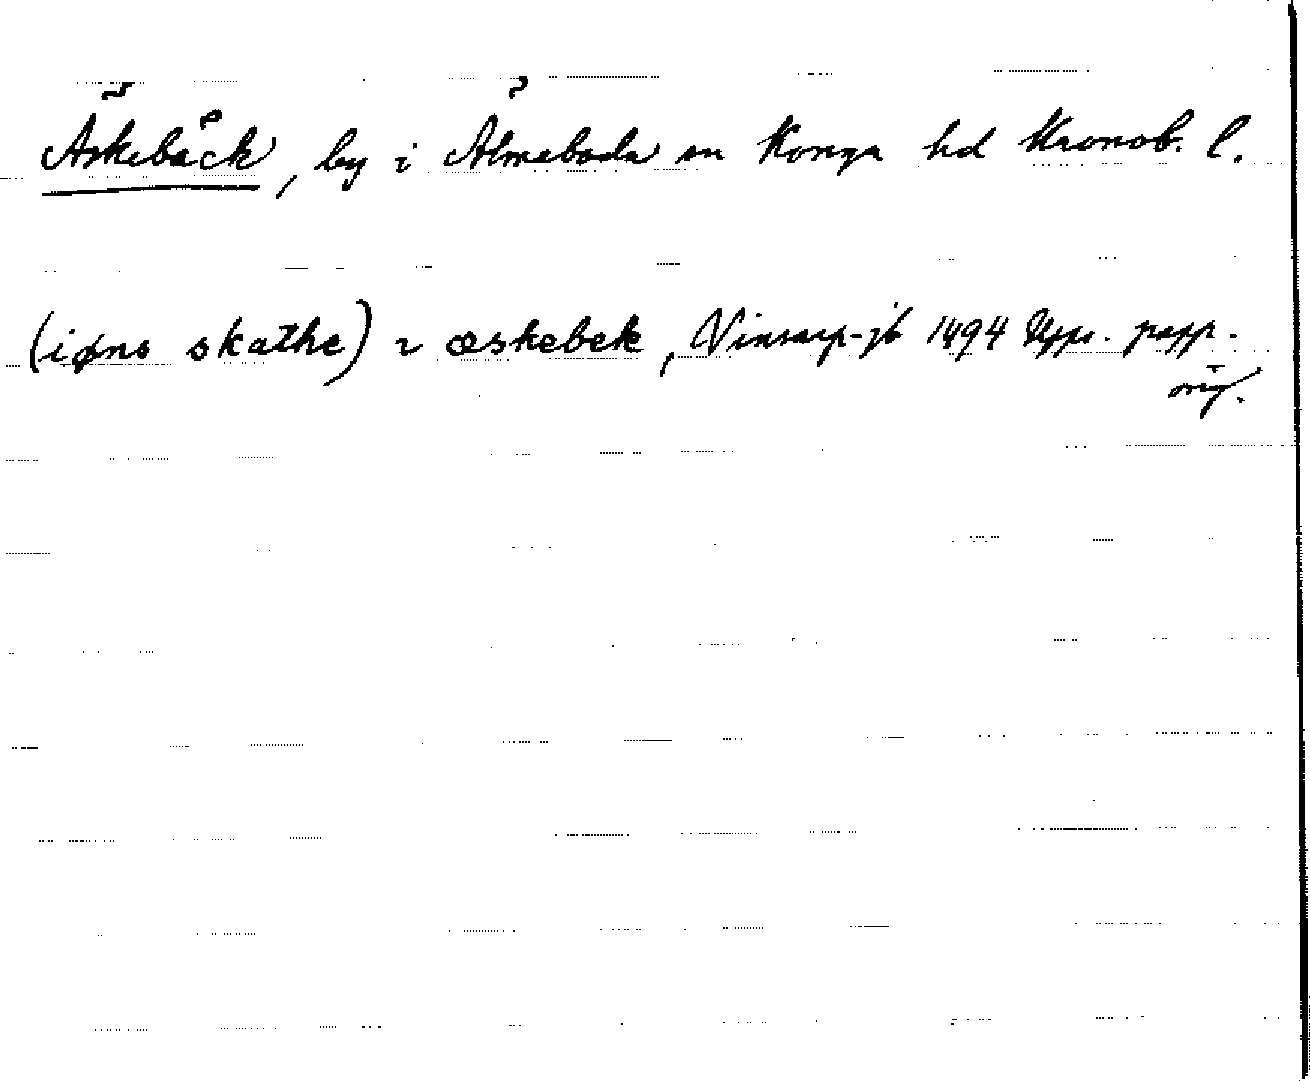 Äskebäck, by i Älmeboda sn Konga hd Kronob. l.
(iøns skathe) ı æskebek, Vinsarp-jb 1494 Upps. papp.
orig.